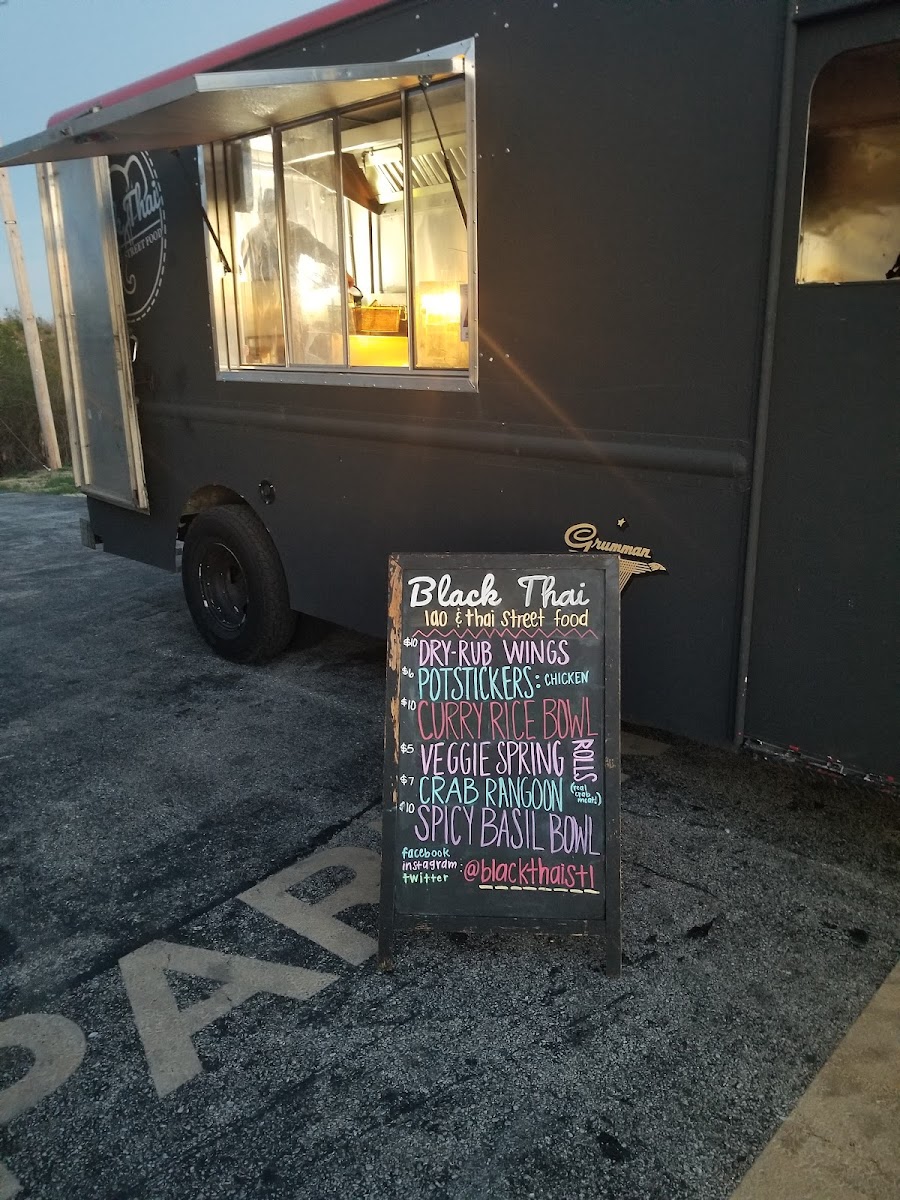 Thai
STREET FOOD
Grumman
Black Thai
lao & thai street food
$10 DRY-RUB WINGS
$6 POTSTICKERS: CHICKEN
$10 CURRY RICE BOWL
$5 VEGGIE SPRING ROLLS
$7 CRAB RANGOON (real crab meat!)
$10 SPICY BASIL BOWL
facebook
instagram: @blackthaistl
twitter
PAR